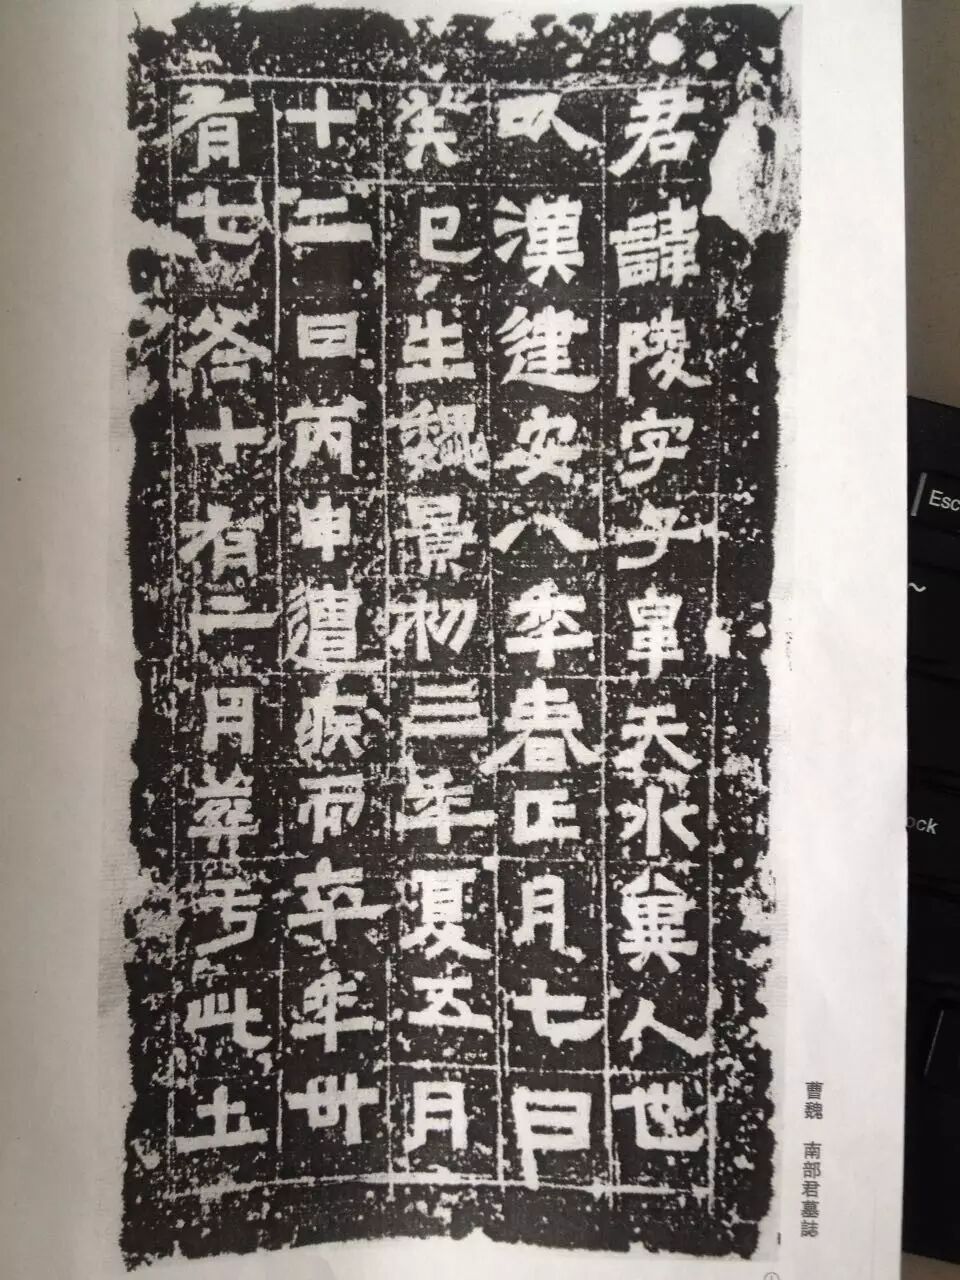 君諱陵字子皐天水冀人世
以漢建安八年春正月七日
癸巳生魏景初三年夏五月
十二日丙申遭疾而卒年卅
有七冬十有二月葬于此土
曹魏 南部君墓誌
Esc
~
ock